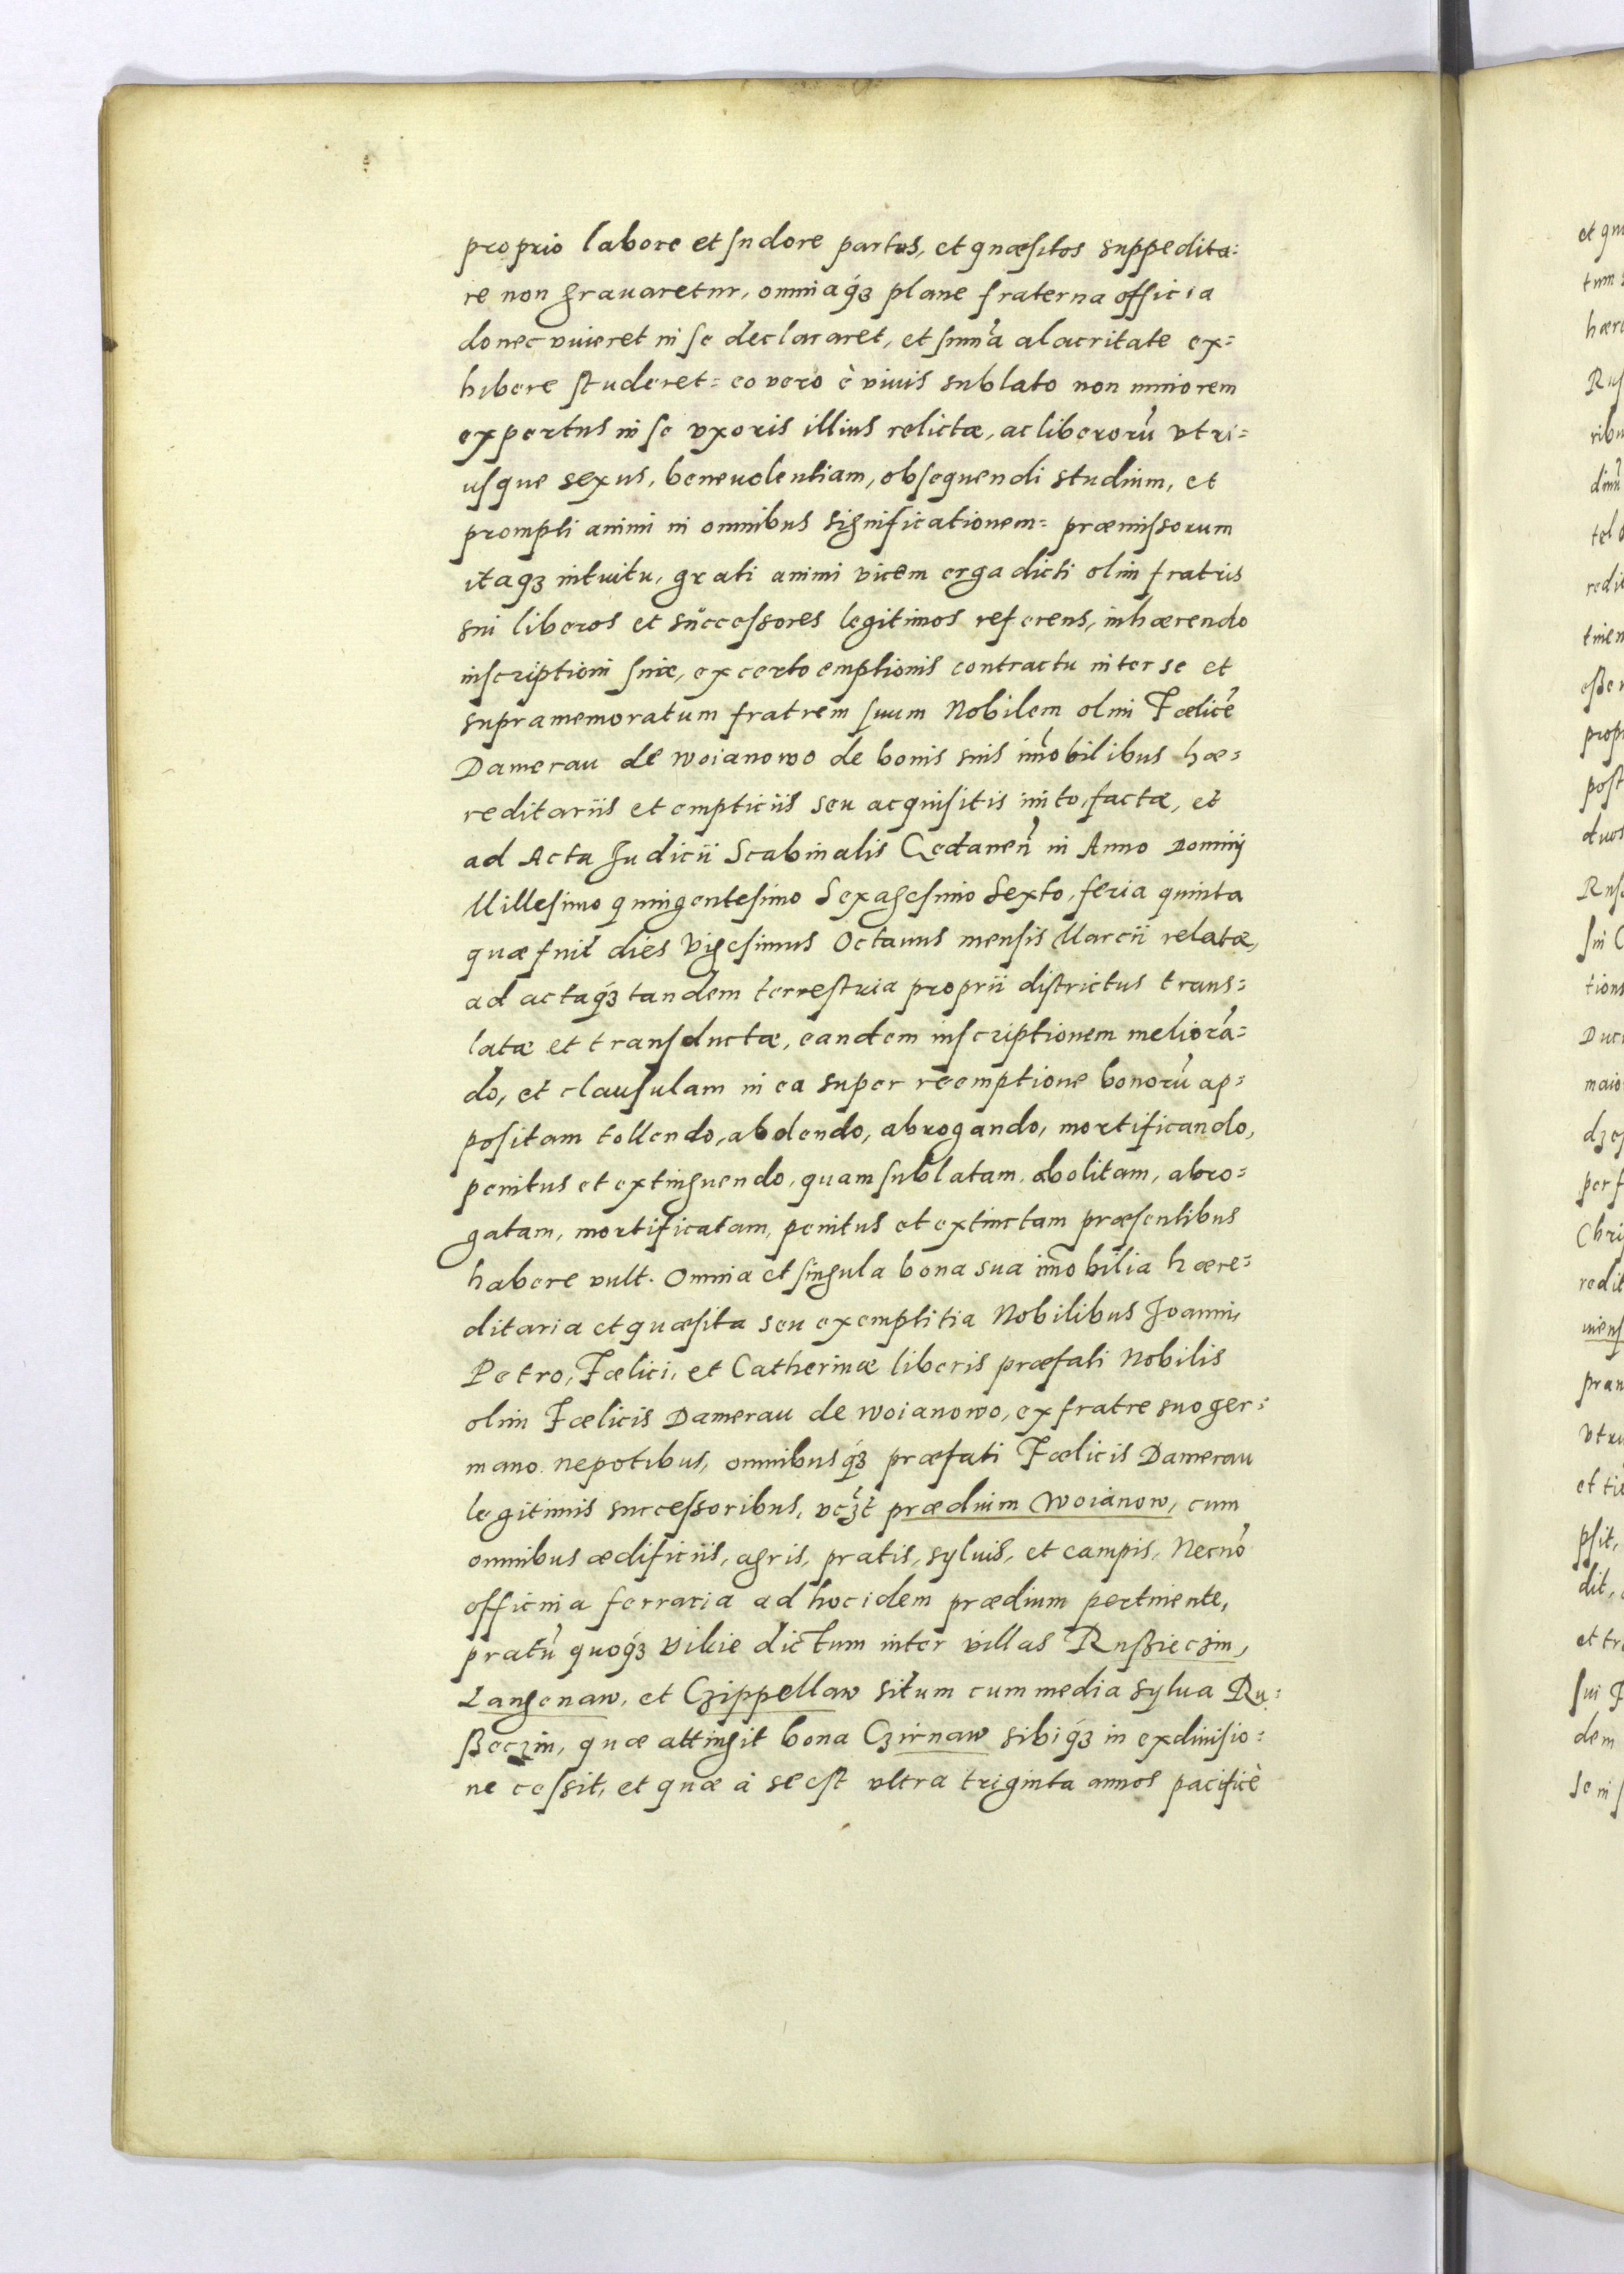 proprio labore et sudore partos, et quæsitos suppedita=
re non grauaretur, omniaq́ꝫ plane fraterna officia
donec viueret in se declararet, et sum̃a alacritate ex=
hibere studeret= eo vero è viuis sublato non minorem
expertus in se vxoris illius relictæ, ac liberorũ vtri=
usque sexus, beneuolentiam, obsequendi studium, et
prompti animi in omnibus significationem= præmissorum
itaqꝫ intuitu, grati animi vicem erga dicti olim fratris
sui liberos et successores legitimos referens, inhærendo
inscriptioni suæ, ex certo emptionis contractu inter se et
supramemoratum fratrem suum Nobilem olim Fœlicẽ
Damerau de Woianowo de bonis suis im̃obilibus hæ=
reditariis et empticiis seu acquisitis inito, factæ, et
ad Acta Judicii Scabinalis Gedaneñ in Anno Dominj
Millesimo quingentesimo Sexagesimo Sexto, feria quinta
quæ fuit dies Vigesimus Octauus mensis Marcii relatæ,
ad actaq́ꝫ tandem terrestria proprii districtus trans=
latæ et transductæ, eandem inscriptionem meliorã=
do, et clausulam in ea super reemptione bonorũ ap=
positam tollendo, abolendo, abrogando, mortificando,
penitus et extinguendo, quam sublatam, abolitam, abro=
gatam, mortificatam, penitus et extinctam præsentibus
habere vult. Omnia et singula bona sua im̃obilia hære=
ditaria et quæsita seu exemptitia Nobilibus Joanni,
Petro, Fœlici, et Catherinæ liberis præfati Nobilis
olim Fœlicis Damerau de Woianowo, ex fratre suo ger=
mano nepotibus, omnibusq́ꝫ præfati Fœlicis Damerau
legitimis successoribus, vcꝫt prædium Woianow, cum
omnibus ædificiis, agris, pratis, syluis, et campis, Necnõ
officina ferraria ad hoc idem prædium pertinente,
pratũ quoq́ꝫ Vikie dictum inter villas Rußieczin,
Langenaw, et Czippellaw situm cum media sylua Ru=
ßeczin, quæ attingit bona Czirnaw sibiq́ꝫ in exdiuisio=
ne cessit, et quæ à se est vltra triginta annos pacificè